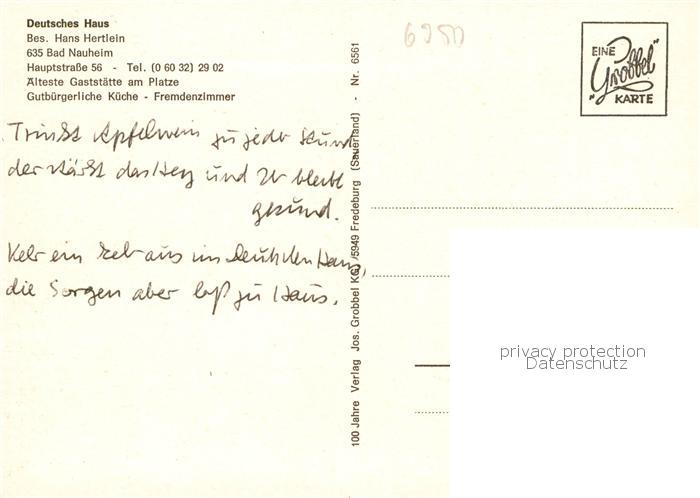 Deutsches Haus
Bes. Hans Hertlein
635 Bad Nauheim
Hauptstraße 56 - Tel. (0 60 32) 29 02
Älteste Gaststätte am Platze
Gutbürgerliche Küche - Fremdenzimmer
Trinkst Apfelwein zu jeder Stund
der stärkt das Herz und Ihr bleibt
gesund.
Kehr ein kehr aus im Deutschen Haus,
die Sorgen aber laß zu Haus.
100 Jahre Verlag Jos. Grobbel KG, 5949 Fredeburg (Sauerland) - Nr. 6561
6950
EINE
„Grobbel“
KARTE
privacy protection
Datenschutz